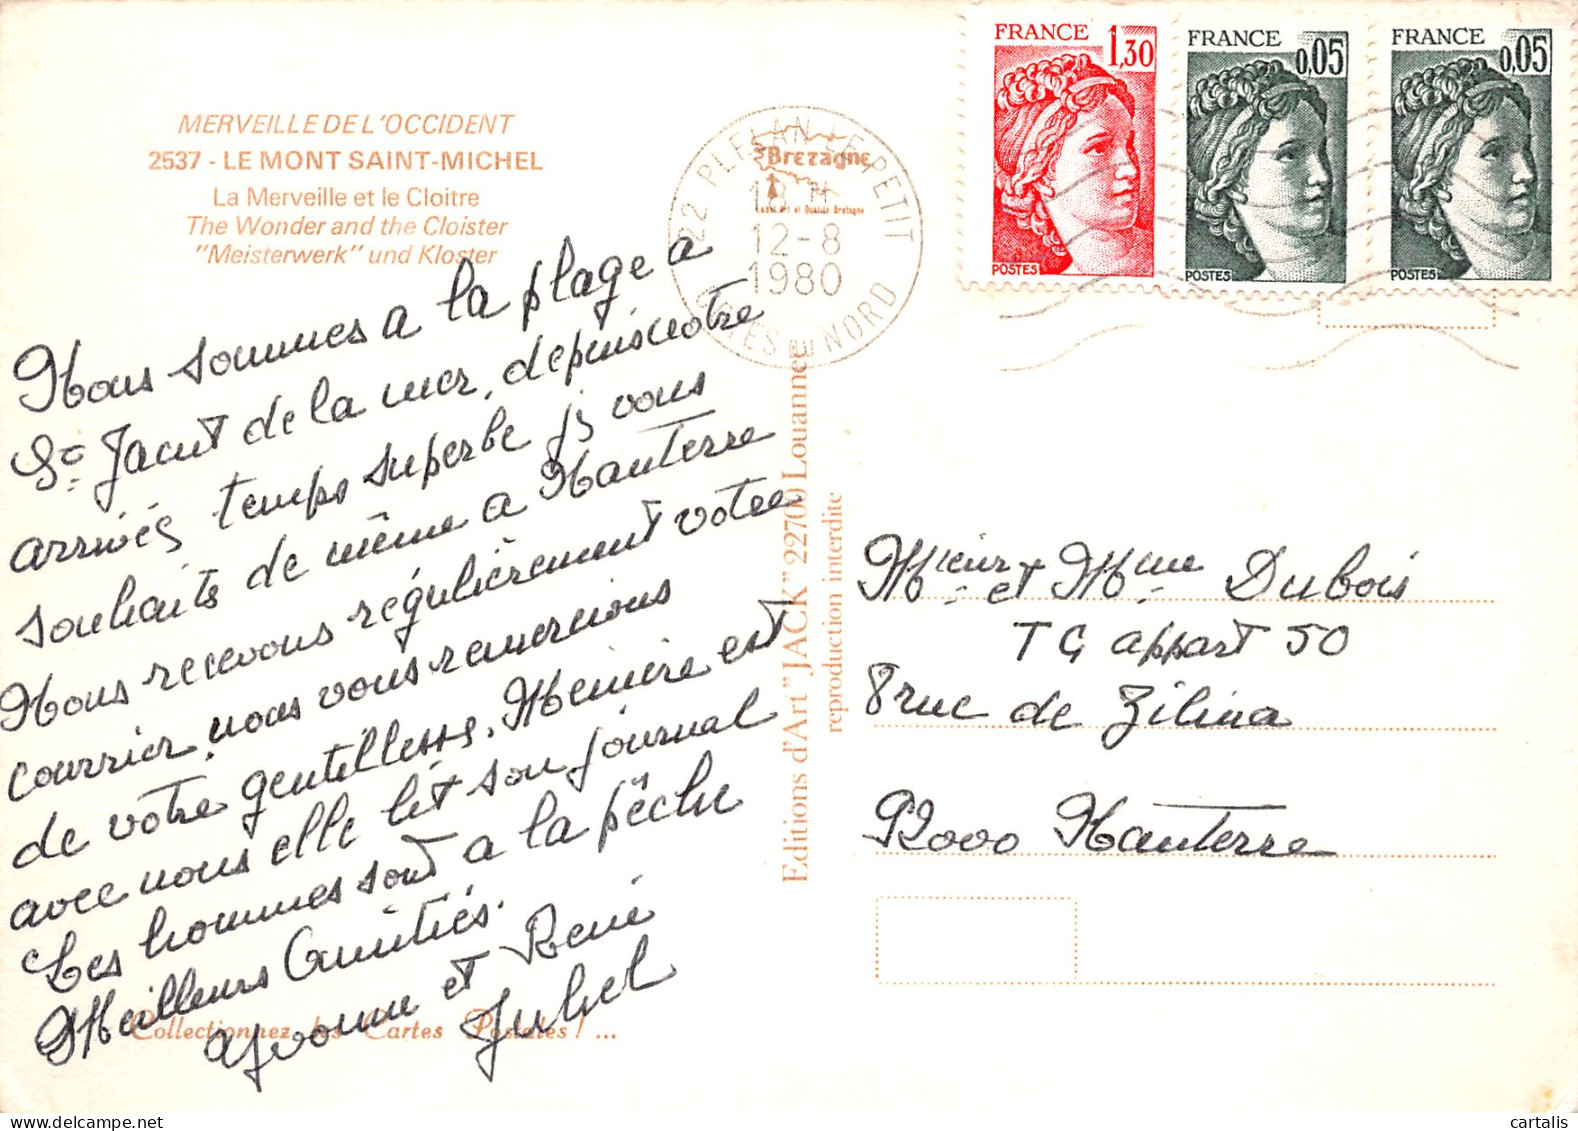 MERVEILLE DE L'OCCIDENT
2537 - LE MONT SAINT-MICHEL
La Merveille et le Cloitre
The Wonder and the Cloister
"Meisterwerk" und Kloster
Nous sommes a la plage a
St Jacut de la mer, depuis notre
arrivés temps superbe je vous
souhaits de même a Nanterre
Nous recevons régulièrement votre
courrier, nous vous remercions
de votre gentillesse. Mémère est
avec nous elle lit son journal
Les hommes sont a la pêche
Meilleurs Amitiés.
Yvonne et René
Juhel
Collectionnez les Cartes Postales ! ...
22 PLELAN-LE-PETIT
Bretagne
18 H
12-8
1980
COTES DU NORD
FRANCE 1,30
POSTES
FRANCE 0,05
POSTES
FRANCE 0,05
POSTES
Editions d'Art "JACK" 22700 Louannec
reproduction interdite
Mieur et Mme Dubois
TG appart 50
8 rue de Zilina
92000 Nanterre
cartalis